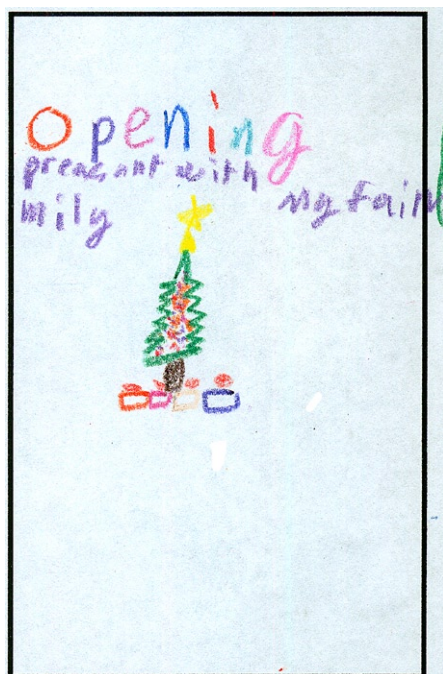 opening
preasant with my faim
mily